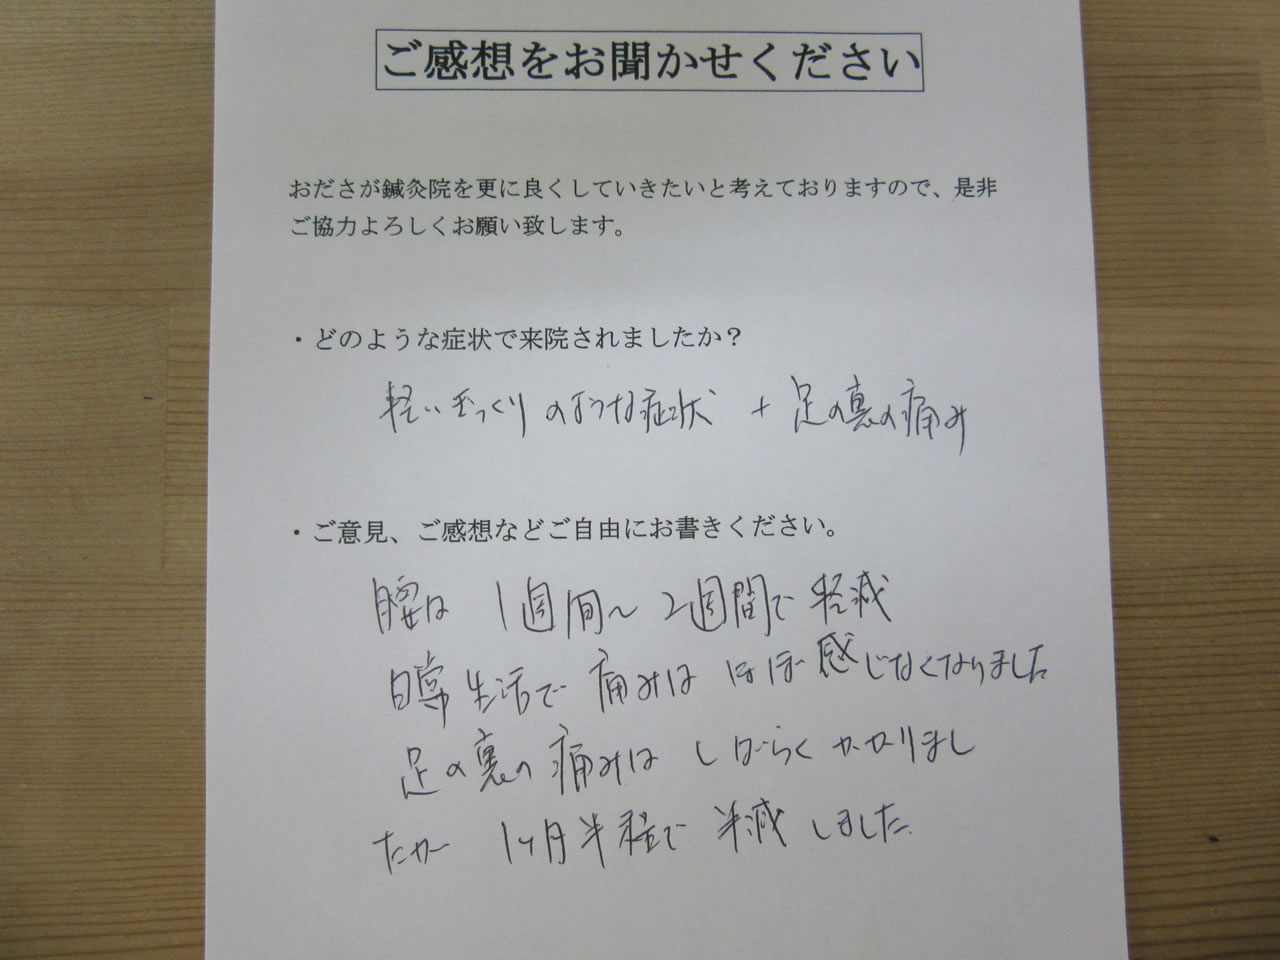 ご感想をお聞かせください
おださが鍼灸院を更に良くしていきたいと考えておりますので、是非
ご協力よろしくお願い致します。
・どのような症状で来院されましたか？
軽いぎっくりのような症状 + 足の裏の痛み
・ご意見、ご感想などご自由にお書きください。
腰は 1週間～2週間で軽減
日常生活で痛みはほぼ感じなくなりました
足の裏の痛みはしばらくかかりまし
たが 1ヶ月半程で半減しました。